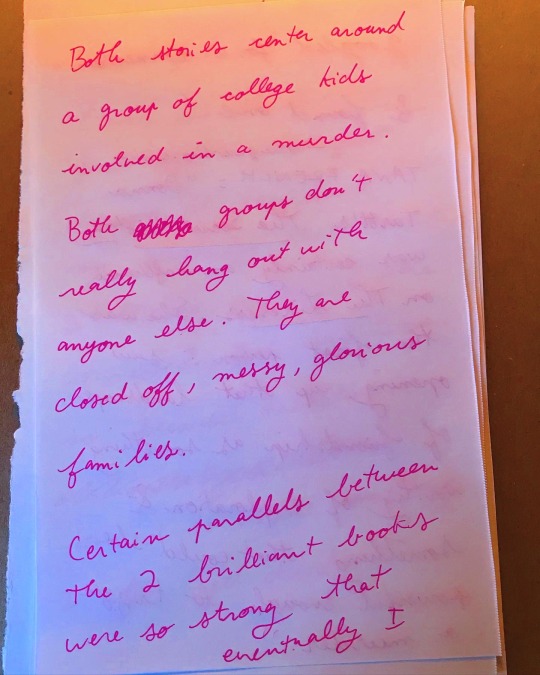 Both stories center around
a group of college kids
involved in a murder.
Both groups don't
really hang out with
anyone else. They are
closed off, messy, glorious
families.
Certain parallels between
the 2 brilliant books
were so strong that
eventually I